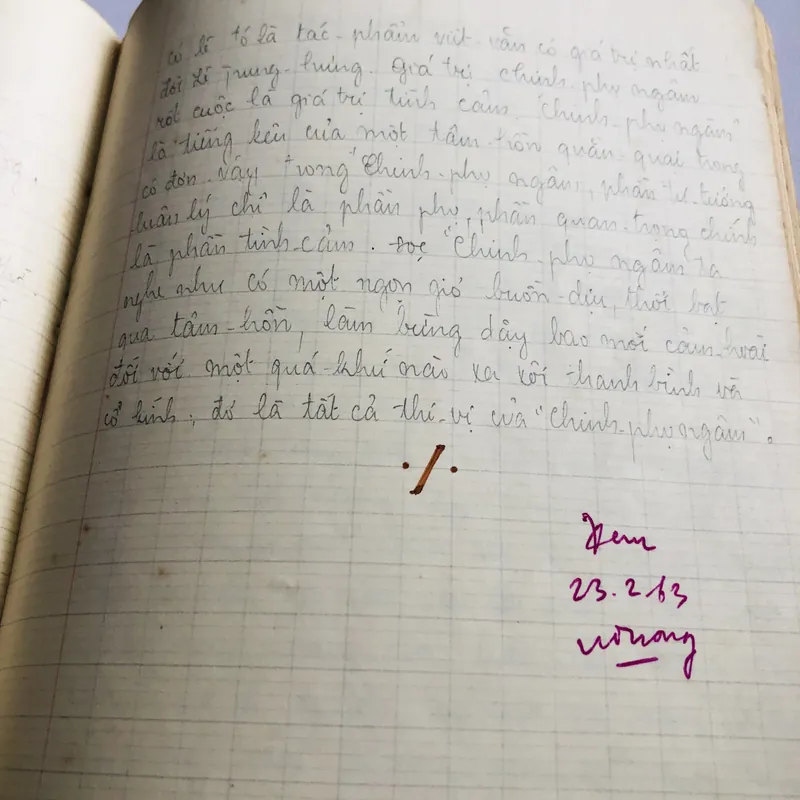 có lẽ tó là tác-phẩm việt-văn có giá trị nhất
đời Lê Trung-hưng. Giá trị chinh-phụ ngâm
rốt cuộc là giá trị tình cảm. "Chinh-phụ ngâm"
là tiếng kêu của một tâm-hồn quằn-quại trong
cô đơn. Vậy trong "Chinh-phụ ngâm", phần tư-tưởng
luân lý chỉ là phần phụ, phần quan-trọng chính
là phần tình-cảm. Đọc "Chinh-phụ ngâm" ta
nghe như có một ngọn gió buồn-dịu, thổi bạt
qua tâm-hồn, làm bừng dậy bao mối cảm-hoài
đối với một quá-khứ nào xa xôi thanh bình và
cổ kính, đó là tất cả thi-vị của "Chinh-phụ ngâm".
./.
Xem
23.2.63